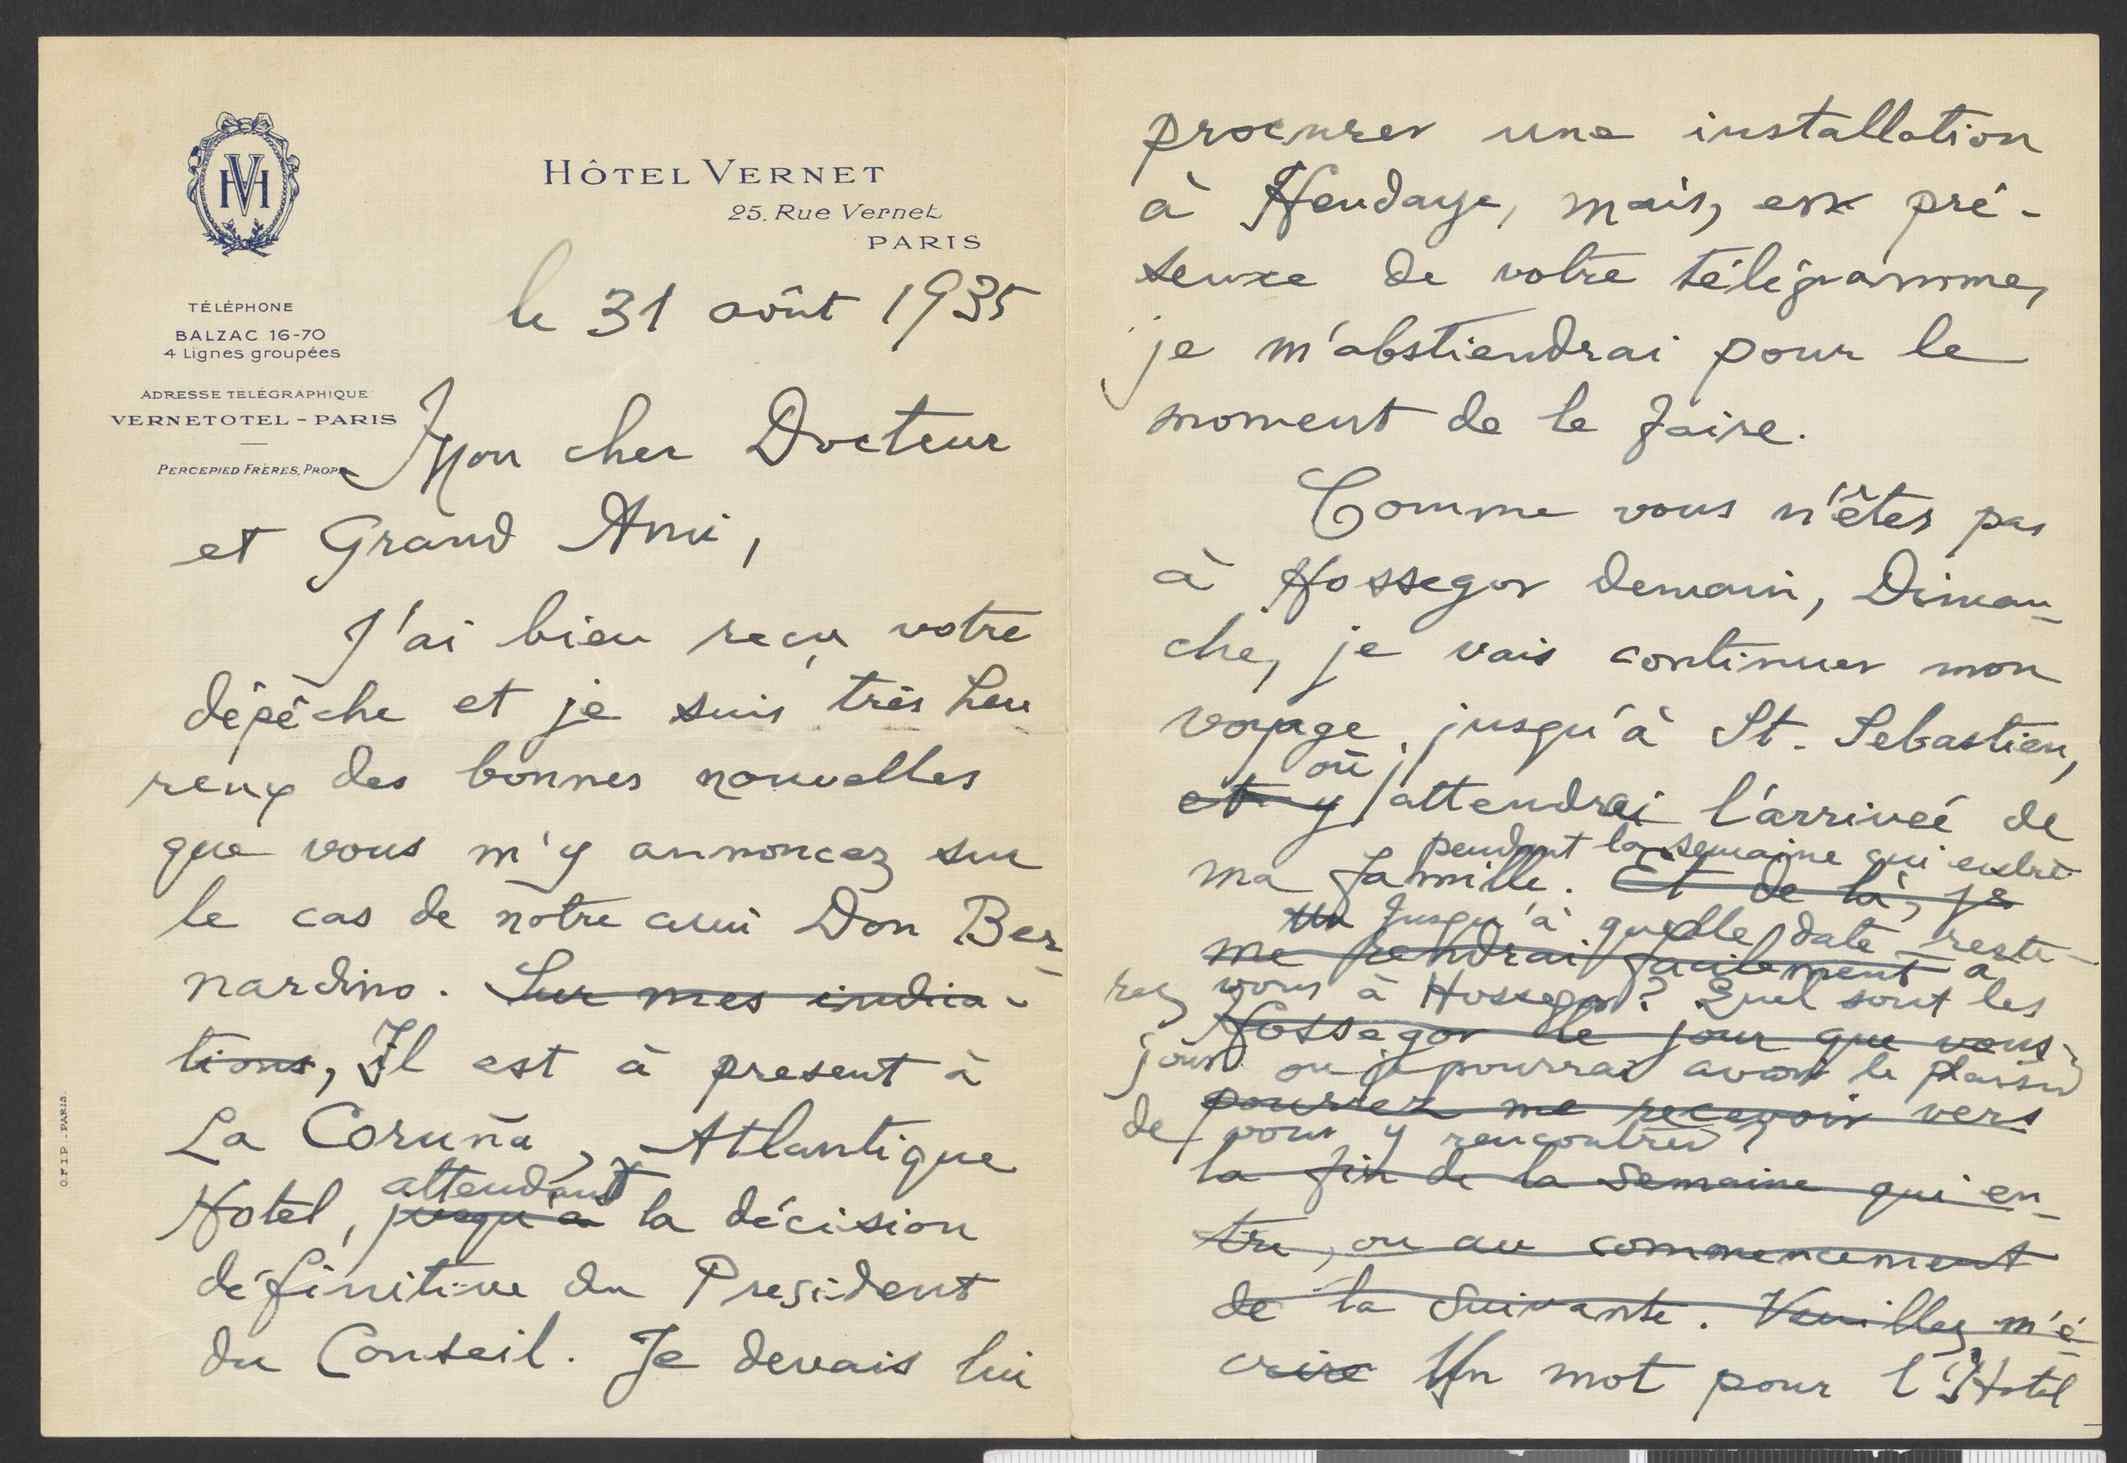 HVM
HÔTEL VERNET
25. Rue Vernet
PARIS
TÉLÉPHONE
BALZAC 16-70
4 Lignes groupées
ADRESSE TÉLÉGRAPHIQUE
VERNETOTEL - PARIS
PERCEPIED FRÈRES, PROP.
le 31 août 1935
Mon cher Docteur
et Grand Ami,
J'ai bien reçu votre
dépêche et je suis très heu-
reux des bonnes nouvelles
que vous m'y annoncez sur
le cas de notre ami Don Ber-
nardino. Sur mes indica-
tions, Il est à present à
La Coruña, Atlantique
attendant
Hotel, jusqu'a la décision
définitive du President
du Conseil. Je devais lui
O.F.I.P. - PARIS.
procurer une installation
à Hendaye, mais, en pré-
sence de votre télégramme,
je m'abstiendrai pour le
moment de le faire.
Comme vous n'êtes pas
à Hossegor demain, Diman-
che, je vais continuer mon
voyage jusqu'à St. Sebastien,
où j'
et y attendrai l'arriveé de
pendant la semaine qui entre
ma famille. Et de là, je
Un Jusqu'à quelle date reste-
me rendrai facilement a
rez vous à Hossegor? Quel sont les
Hossegor le jour que vous
jours ou je pourrai avoir le plaisir
pourrez me recevoir vers
de vous y rencontrer?
la fin de la semaine qui en-
tre, ou au commencement
de la suivante. Veuillez m'é-
crire Un mot pour l'Hotel